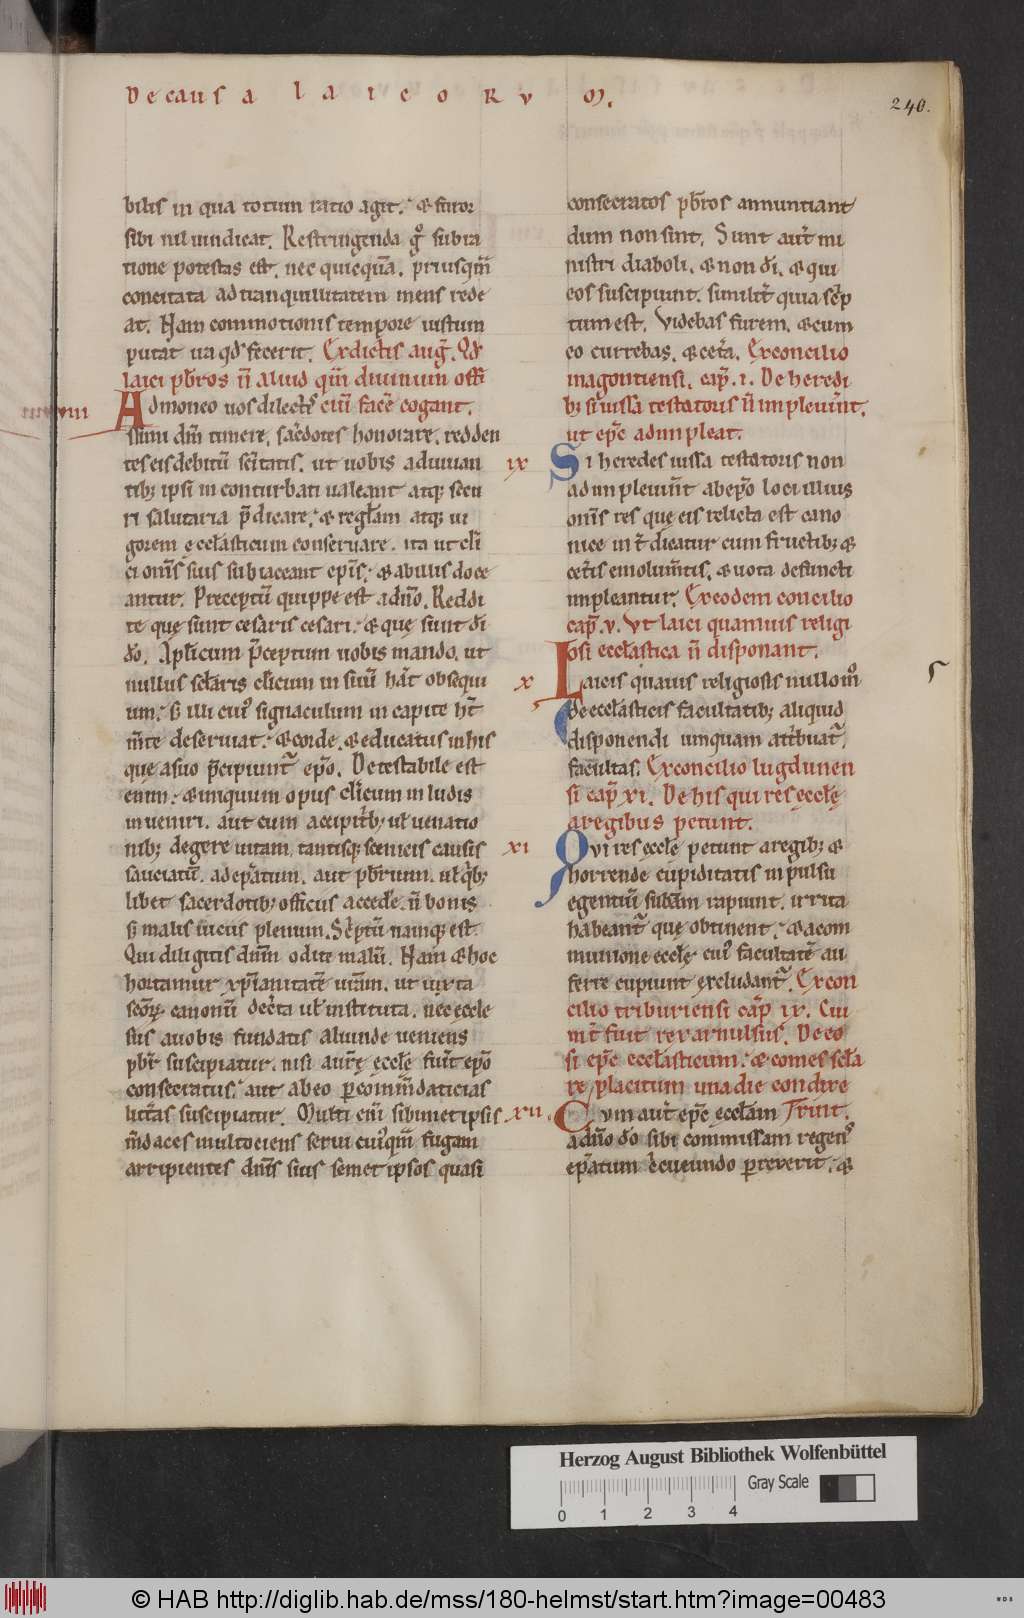 De causa laicoRvm.
240.
bilis in qua totum ratio agit. & furor
sibi nil uindicat. Restringenda gͦ sub ra
tione potestas est. nec quicquā. priusqm̄
concitata ad tranquillitatem mens rede
at. Nam commotionis tempore iustum
putat ira qd fecerit. Ex dictis aug̅. Qd
laici pb̅ros n̅ aliud qm̅ diuinum offi
viii
Admoneo uos dilectͥ ciū facē cogant.
ssimi dm̅ timere. sac̅dotes honorare. redden
tes eis debitū sc̅itatis. ut uobis adiuuan
tib; ipsi inconturbati ualeant atq; secu
ri salutaria p̅dicare. & regl̅am atq; ui
gorem ęccl̅asticum conseruare. ita ut cl̅i
ci om̅s suis subiaceant ep̅is. & ab illis doce
antur. Preceptū quippe est a dn̅o. Reddi
te quę sunt cesaris cesari. & quę sunt di̅
do̅. Apl̅icum p̅ceptum uobis mando. ut
nullus scl̅aris cl̅icum in suū hāt obsequi
um. s; illi cui᾽ signaculum in capite ht̅
m̅te deseruiat. & corde. & educatus in his
que a suo p̅cipiunt᾽ ep̅o. Detestabile est
enim. & iniquum opus cl̅icum in ludis
inueniri. aut cum accipit̅b; ul̅ uenatio
nib; degere uitam. tantisq; scenicis causis
sauciatū. ad ep̅atum. aut pb̅rum. ul̅ q̅b;
libet sacerdotib; officiis accede̅. n̅ bonis
s; malis iu̅cus plenum. Sc̅ptū namq; est.
Qui diligitis dn̅m odite malū. Nam & hoc
hortamur xp̅ianitatē ur̅am. ut iuxta
sc̅oꝝ canonū dec̅ta ul̅ instituta. nec eccle
siis a uobis fundatis aliunde ueniens
pb̅r suscipiatur. nisi aut̅ ę eccl̅ę fuīt ep̅o
consecratus. aut ab eo p̱com̅m̅daticias
litt̅as suscipiatur. Multi eni̅ sibimet ipsis
m̅daces multociens serui cui᾽qm̅ fugam
arripientes dn̅is suis semet ipsos quasi
consecratos pb̅ros annuntiant
dum non sint. Sunt aut̅ mi
nistri diaboli. & non di̅. & qui
eos suscipiunt. similit̅ quia sc̅p
tum est. Videbas furem. & cum
eo currebas. & cet̅a. Ex concilio
magontiensi. cap̅. i. De heredi
b; si iussa testatoris n̅ impleuīnt.
ut ep̅c adimpleat.
ix
Si heredes iussa testatoris non
adimpleuīnt ab ep̅o loci illius
om̅s res quę eis relicta est cano
nice int̅dicatur cum fructib; &
cet̅is emolum̅tis. & uota defuncti
impleantur. Ex eodem concilio
cap̅. v. Vt laici quamuis religi
osi eccl̅astica n̅ disponant.
x
Laicis qua̅uis religiosis nullo m͂o
de eccl̅asticis facultatib; aliquid
disponendi umquam att̅buat᾽
facultas. Ex concilio lugdunen
si cap̅ xi. De his qui res ęccl̅ę
a regibus petunt.
xi
Qvi res ęccl̅ę petunt a regib; &
horrende cupiditatis inpulsu
egentiū suba̅m rapiunt. irrita
habeant᾽ quę obtinent. & a com
munione eccl̅ę cui᾽ facultatē au
ferre cupiunt excludant᾽. Ex con
cilio triburiensi cap̅ ix. Cui
int̅fuit rex arnulfus. De eo
si ep̅c eccl̅asticum. & comes scl̅a
re placitum una die condixe
rint.
xii.
Cvm aut̅ ep̅c eccl̅am
a dn̅o do̅ sibi commissam regen᾽
ep̅atum c̅cueundo p̱rexerit. &
Herzog August Bibliothek Wolfenbüttel
Gray Scale
0 1 2 3 4
© HAB http://diglib.hab.de/mss/180-helmst/start.htm?image=00483